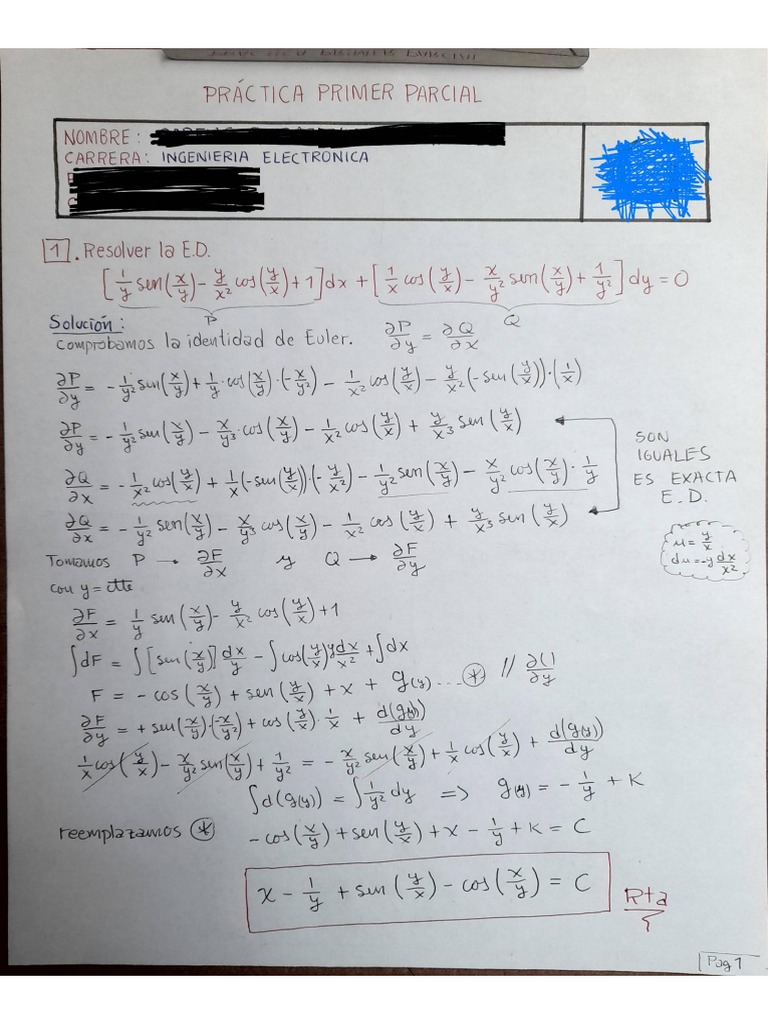 PRÁCTICA PRIMER PARCIAL
NOMBRE:
CARRERA: INGENIERIA ELECTRONICA
1. Resolver la E.D.
[1/y sen(x/y) - y/x² cos(y/x) + 1]dx + [1/x cos(y/x) - x/y² sen(x/y) + 1/y²]dy = 0
P Q
Solución:
comprobamos la identidad de Euler. ∂P/∂y = ∂Q/∂x
∂P/∂y = -1/y² sen(x/y) + 1/y·cos(x/y)·(-x/y²) - 1/x² cos(y/x) - y/x²(-sen(y/x))·(1/x)
∂P/∂y = -1/y² sen(x/y) - x/y³·cos(x/y) - 1/x² cos(y/x) + y/x³ sen(y/x)
∂Q/∂x = -1/x² cos(y/x) + 1/x(-sen(y/x))·(-y/x²) - 1/y² sen(x/y) - x/y² cos(x/y)·1/y
∂Q/∂x = -1/y² sen(x/y) - x/y³ cos(x/y) - 1/x² cos(y/x) + y/x³ sen(y/x)
SON
IGUALES
ES EXACTA
E.D.
Tomamos P → ∂F/∂x y Q → ∂F/∂y
u = y/x
du = -y dx/x²
con y = ctte
∂F/∂x = 1/y sen(x/y) - y/x² cos(y/x) + 1
∫dF = ∫[sen(x/y)]dx/y - ∫cos(y/x)y dx/x² + ∫dx
F = -cos(x/y) + sen(y/x) + x + g(y) ... * // ∂()/∂y
∂F/∂y = +sen(x/y)·(-x/y²) + cos(y/x)·1/x + d(g(y))/dy
1/x cos(y/x) - x/y² sen(x/y) + 1/y² = -x/y² sen(x/y) + 1/x cos(y/x) + d(g(y))/dy
∫d(g(y)) = ∫1/y² dy => g(y) = -1/y + K
reemplazamos * -cos(x/y) + sen(y/x) + x - 1/y + K = C
x - 1/y + sen(y/x) - cos(x/y) = C
Rta
Pag 1